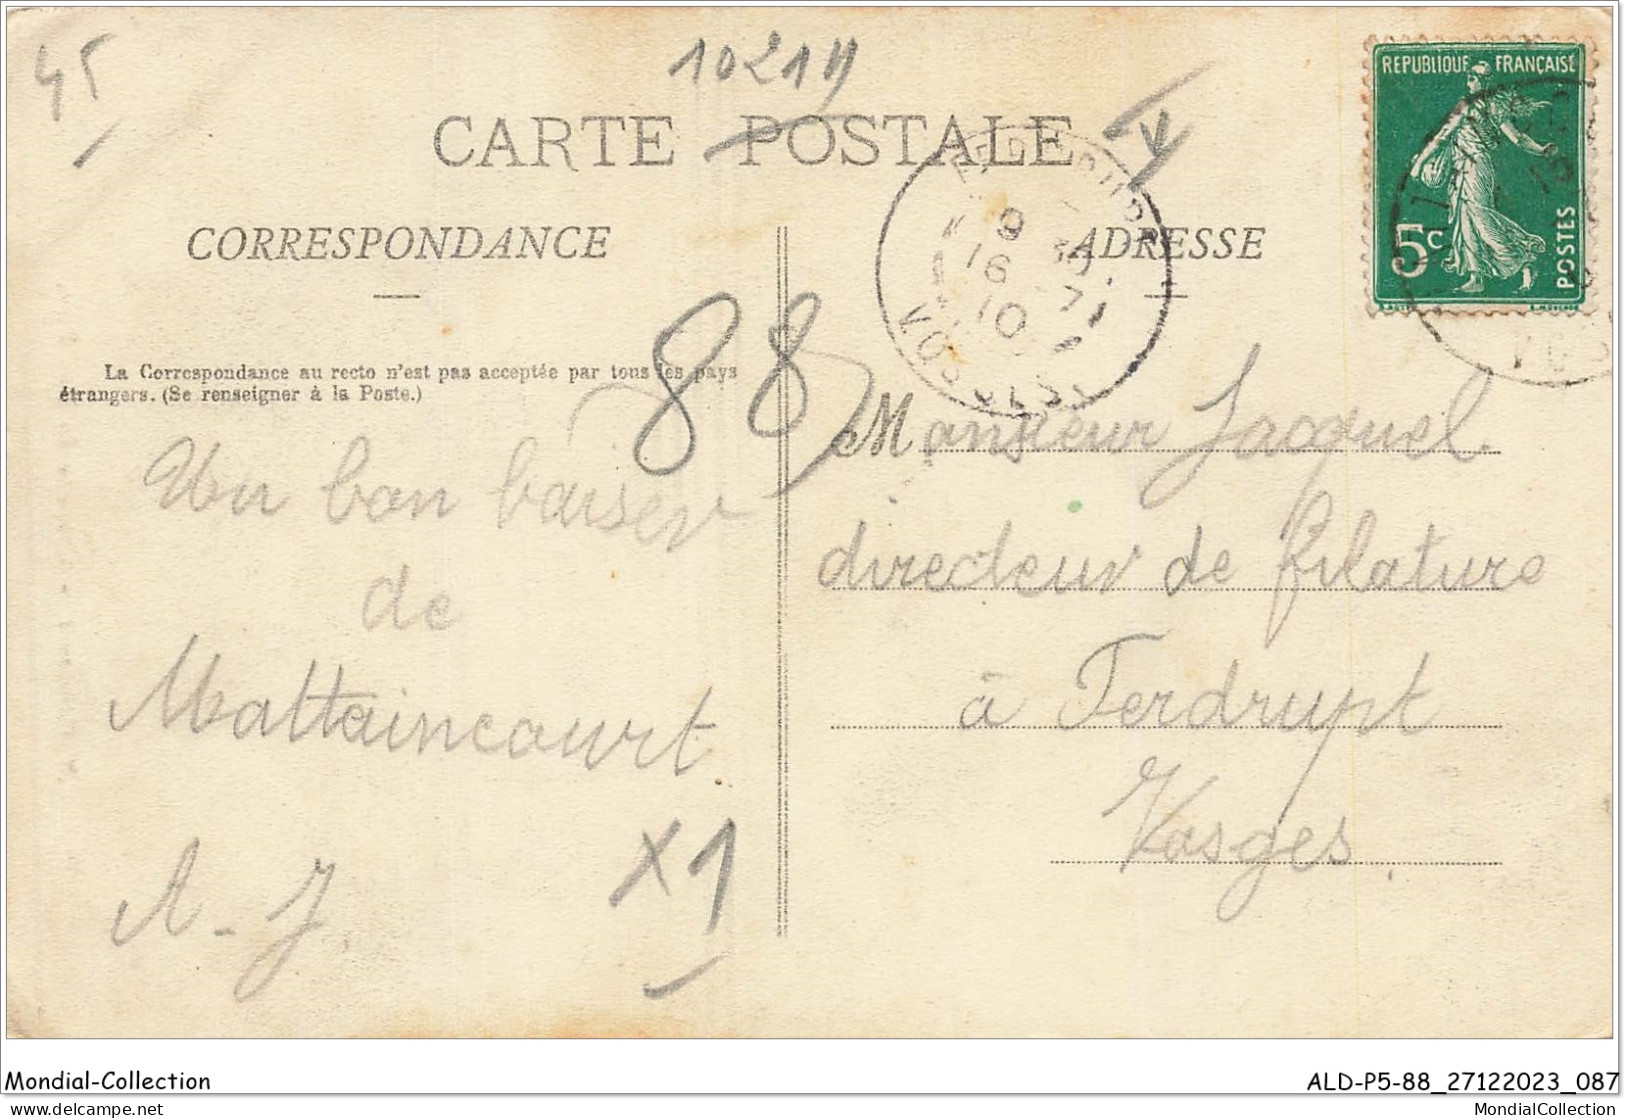 45
10214
CARTE POSTALE
REPUBLIQUE FRANÇAISE
5c
POSTES
CORRESPONDANCE
ADRESSE
VOSGES
La Correspondance au recto n'est pas acceptée par tous les pays
étrangers. (Se renseigner à la Poste.)
88
Un bon baiser
de
Mattaincourt
A-J.
X1
Monsieur Jacquel
directeur de filature
à Ferdrupt
Vosges
Mondial-Collection
ALD-P5-88_27122023_087
MondialCollection
MondialCollection